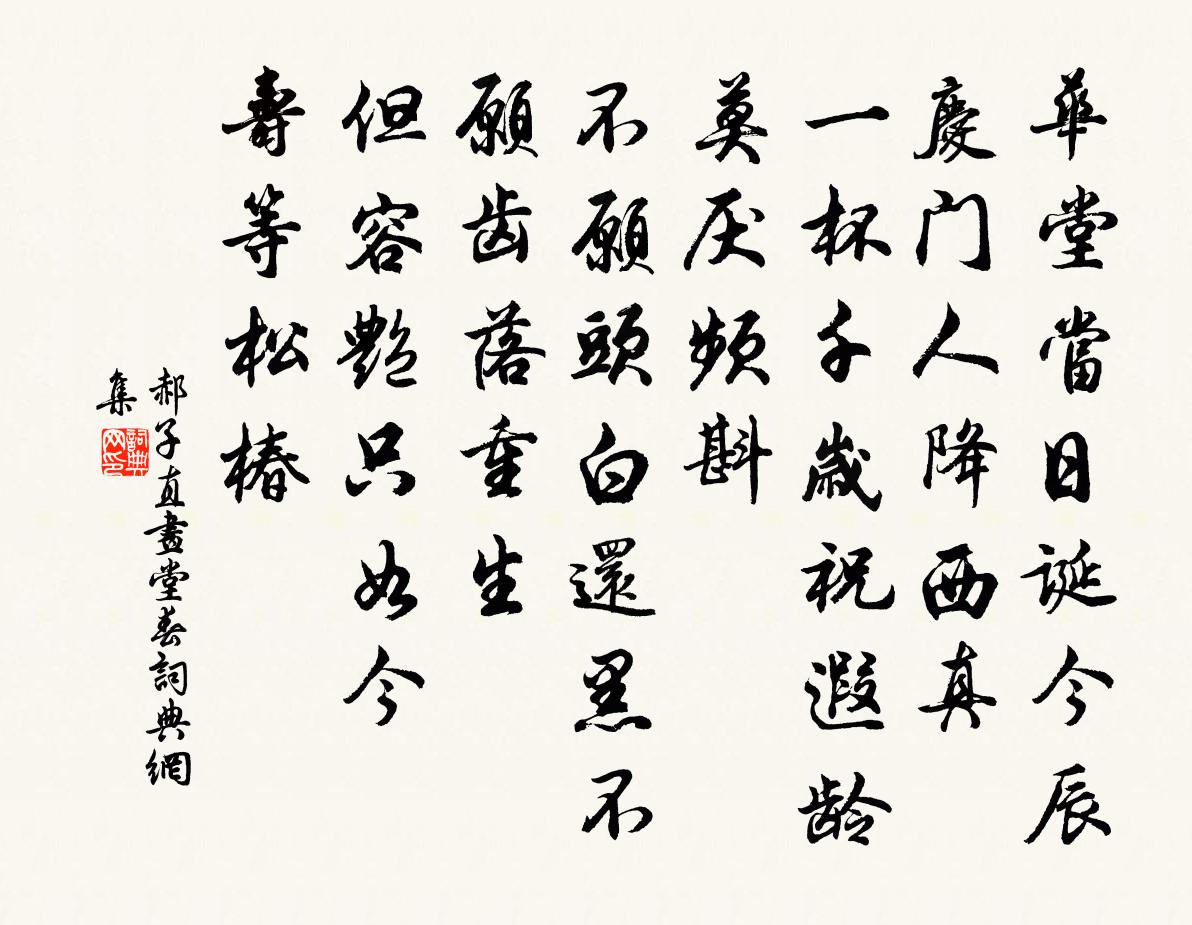 華堂當日誕今辰
慶门人降西真
一杯千歲祝遐龄
莫厌频斟
不願頭白還黑不
願齿落重生
但容艷只如今
壽等松椿
郝子直畫堂春詞典網
集
詞典网印